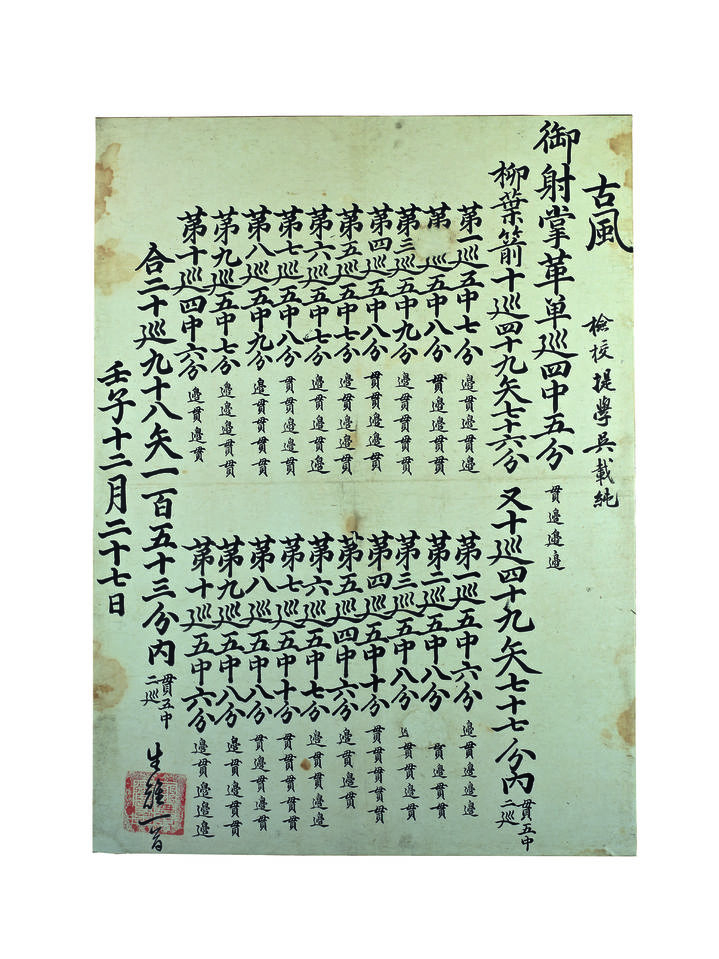 古風
檢校提學吳載純
御射掌革单巡四中五分 貫邊邊邊
柳葉箭十巡四十九矢七十六分
第一巡五中七分 邊貫邊貫邊
第 巡五中八分 貫貫邊邊貫
第三巡五中九分 邊貫貫貫貫
第四巡五中八分 貫貫邊邊貫
第五巡五中七分 邊邊貫貫邊
第六巡五中七分 邊貫貫邊邊
第七巡五中八分 貫邊邊貫貫
第八巡五中九分 邊貫貫貫貫
第九巡五中七分 邊邊邊貫貫
第十巡四中六分 邊貫邊貫
又十巡四十九矢七十七分內 貫五中二巡
第一巡五中六分 邊貫邊邊邊
第二巡五中八分 邊邊貫貫貫
第三巡五中八分 邊貫邊貫貫
第四巡五中十分 貫貫貫貫貫
第五巡四中六分 邊貫邊貫
第六巡五中七分 邊貫貫邊邊
第七巡五中十分 貫貫貫貫貫
第八巡五中八分 貫邊邊貫貫
第九巡五中八分 邊貫邊貫貫
第十巡五中六分 邊貫邊邊邊
合二十巡九十八矢一百五十三分內 貫五中二巡
生雉一首
壬子十二月二十七日